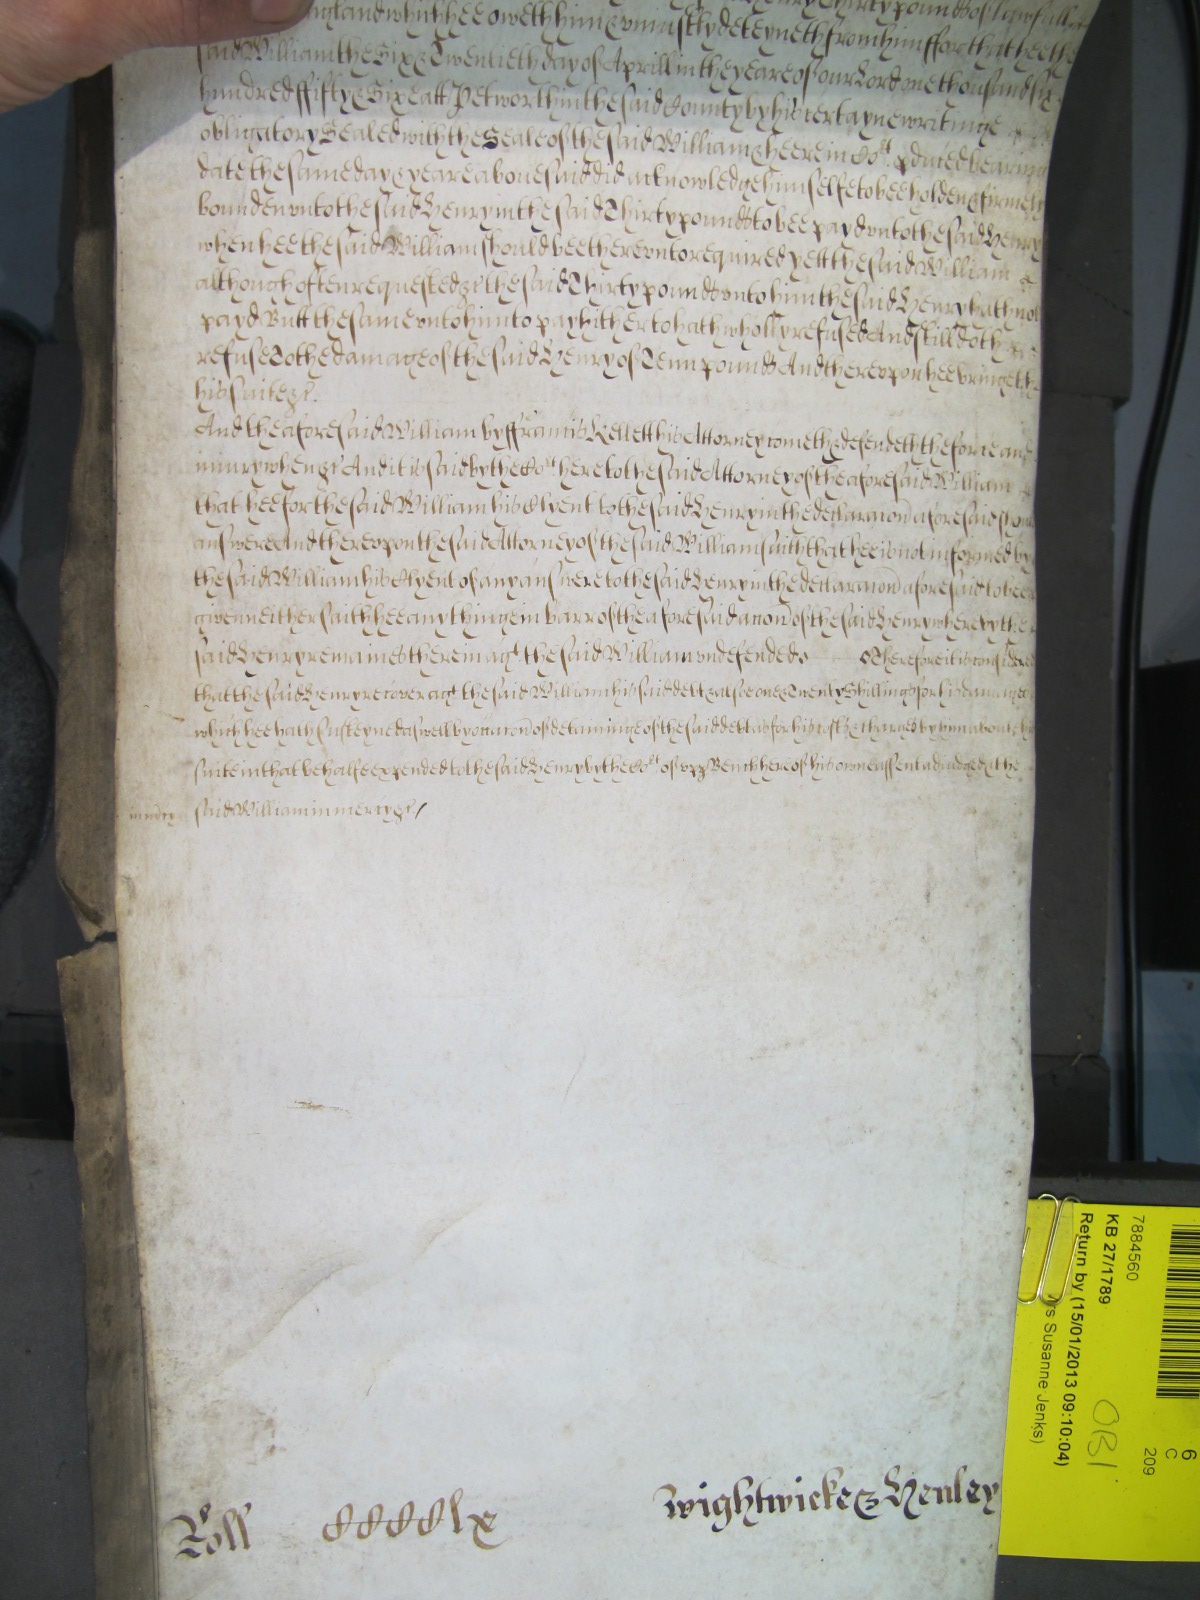 Thirty pounds of lawfull
England which hee oweth him & uniustly deteyneth from him ffor that hee the
said William the Sixe & Twentieth day of Aprill in the yeare of our Lord one thousand six
hundred ffifty & Six att Petworth in the said County by his certayne writinge
obligatory Sealed with the Seale of the said William & heere in Cort pduced bearing
date the same day & yeare aboue said did acknowledge himselfe to bee holden & firmely
bounden vnto the said Henry in the said Thirty pounds to bee payd vnto the said Henry
when hee the said William should bee therevnto required yett the said William
although often requested &c the said Thirty pounds vnto him the said Henry hath not
payd Butt the same vnto him to pay hitherto hath wholly refused And still doth
refuse To the damage of the said Henry of Tenn pounds And therevpon hee bringeth
his suite &c.
And the aforesaid William by ffrancis Kellett his Attorney cometh & defendeth the force and
iniury when &c And it is said by the Cort here to the said Attorney of the aforesaid William
that hee for the said William his Clyent to the said Henry in the declaracon aforesaid should
answere And therevpon the said Attorney of the said William saith that hee is not informed by
the said William his Clyent of any answere to the said Henry in the declaracon aforesaid to bee
given neither saith hee any thinge in barr of the aforesaid accon of the said Henry whereby the
said Henry remaines therein agt the said William vndefended Therefore it is considered
that the said Henry recover agt the said William his said debt & alsoe one & Twenty Shillings for his damages
which hee hath susteyned aswell by occacon of detaininge of the said debt as for his costs & charges by him about his
suite in that behalfe expended to the said Henry by the Cort of vpp Bench here of his owne assent adiudged & the
mercy said William in mercy &c /
Roll CCCClx Wightwicke & Henley
7884560
KB 27/1789
Return by (15/01/2013 09:10:04)
s Susanne Jenks)
OBI
6
C
209